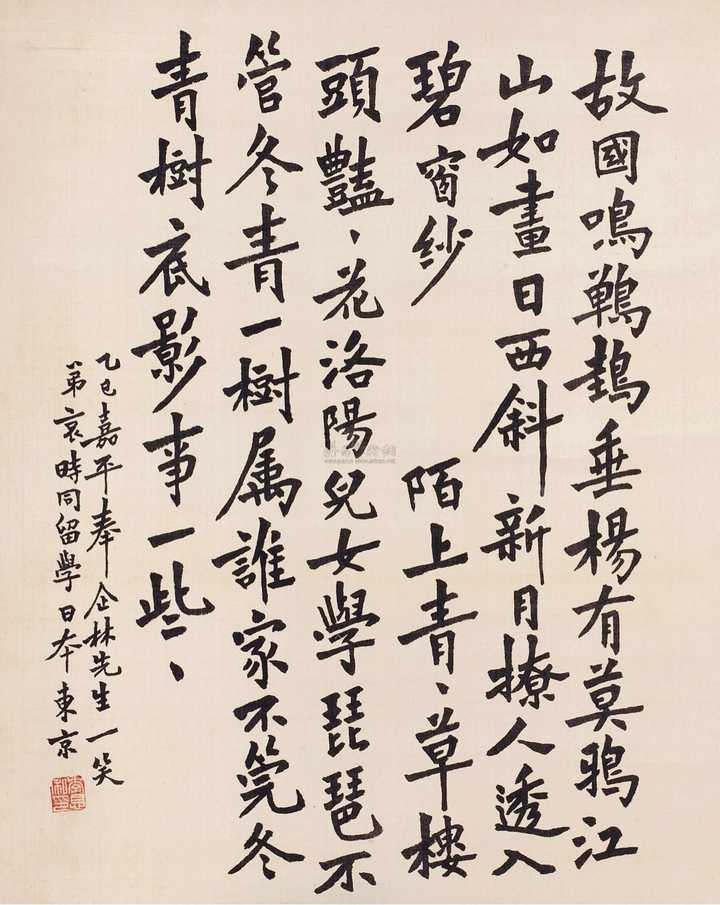 故國鳴鷤䳏垂楊有莫鴉江
山如畫日西斜新月撩人透入
碧窗紗 陌上青、草樓
頭豔、花洛陽兒女學琵琶不
管冬青一樹属誰家不筦冬
青樹底影事一些、
乙巳嘉平奉 企林先生一笑
弟哀時同留學日本東京